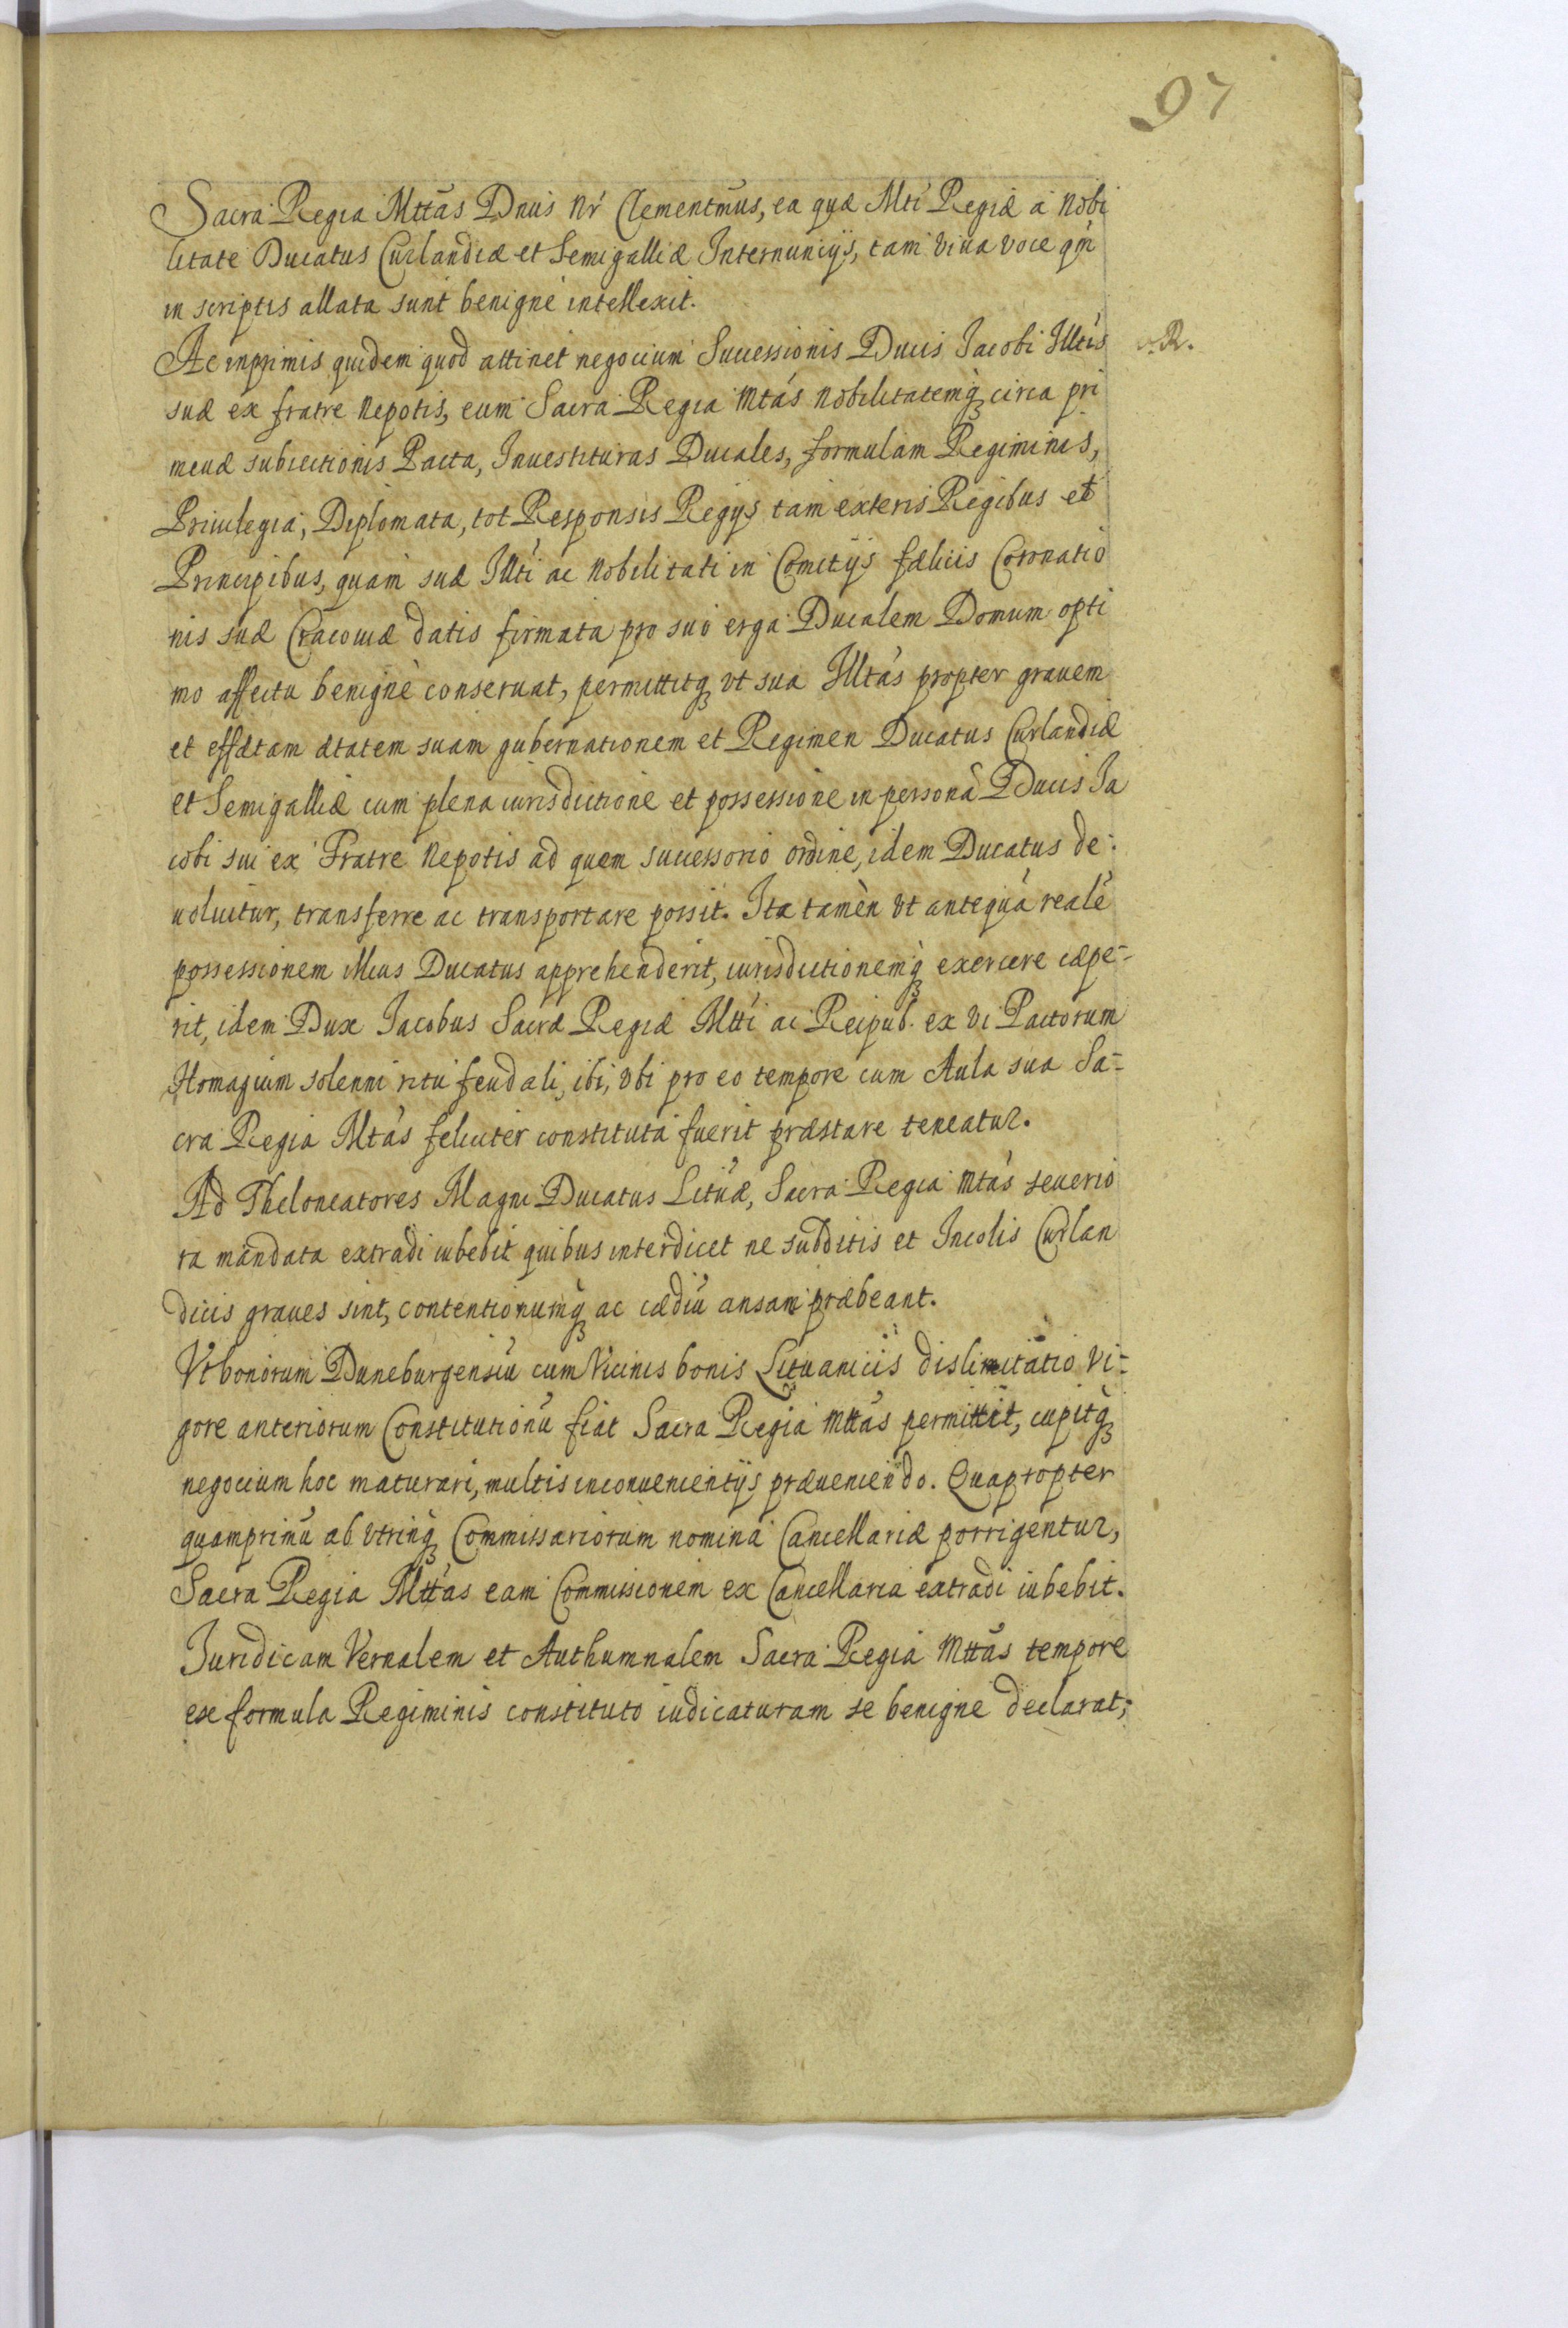 97
Sacra Regia Mttas Dnus Nr Clementmus, ea quæ Mti Regiæ à Nobi
litate Ducatus Curlandiæ et Semigalliæ Internuncijs, tam viua voce qm
in scriptis allata sunt benignè intellexit.
Ac inprimis quidem quod attinet negocium Successionis Ducis Iacobi Illtis
suæ ex fratre Nepotis, eum Sacra Regia Mtas Nobilitatemq circa pri
meuæ subiectionis Pacta, Inuestituras Ducales, formulam Regiminis,
Priuilegia, Diplomata, tot Responsis Regijs tam exteris Regibus et
Principibus, quam suæ Illti ac Nobilitati in Comitijs fælicis Coronatio
nis suæ Cracouiæ datis firmata pro suo erga Ducalem Domum opti
mo affectu benignè conseruat, permittitq vt sua Illtas propter grauem
et effætam ætatem suam gubernationem et Regimen Ducatus Curlandiæ
et Semigalliæ cum plena iurisdictione et possessione in personà Ducis Ia
cobi sui ex Fratre Nepotis ad quem successorio ordine, idem Ducatus de-
uoluitur, transferre ac transportare possit. Ita tamèn vt antequà realè
possessionem illius Ducatus apprehenderit, iurisdictionemq exercere cæpe-
rit, idem Dux Iacobus Sacræ Regiæ Mtti ac Reipub. ex vi Pactorum
Homagium solenni ritu feudali, ibi, vbi pro eo tempore cum Aula sua Sa-
cra Regia Mtas feliciter constituta fuerit præstare teneatur.
Ad Theloneatores Magni Ducatus Lituæ, Sacra Regia Mtas seuerio
ra mandata extradi iubebit quibus interdicet ne subditis et Incolis Curlan
dicis graues sint, contentionumq ac cædiũ ansam præbeant.
Vt bonorum Duneburgensiũ cum Vicinis bonis Lituanicis dislimitatio vi-
gore anteriorum Constitutionũ fiat Sacra Regia Mttas permittit, cupitq
negocium hoc maturari, multis inconuenientijs præueniendo. Quapropter
quamprimũ ab vtrinq Commissariorum nomina Cancellariæ porrigentur,
Sacra Regia Mttas eam Commissionem ex Cancellaria extradi iubebit.
Iuridicam Vernalem et Authumnalem Sacra Regia Mttas tempore
ex formula Regiminis constituto iudicaturam se benigne declarat;